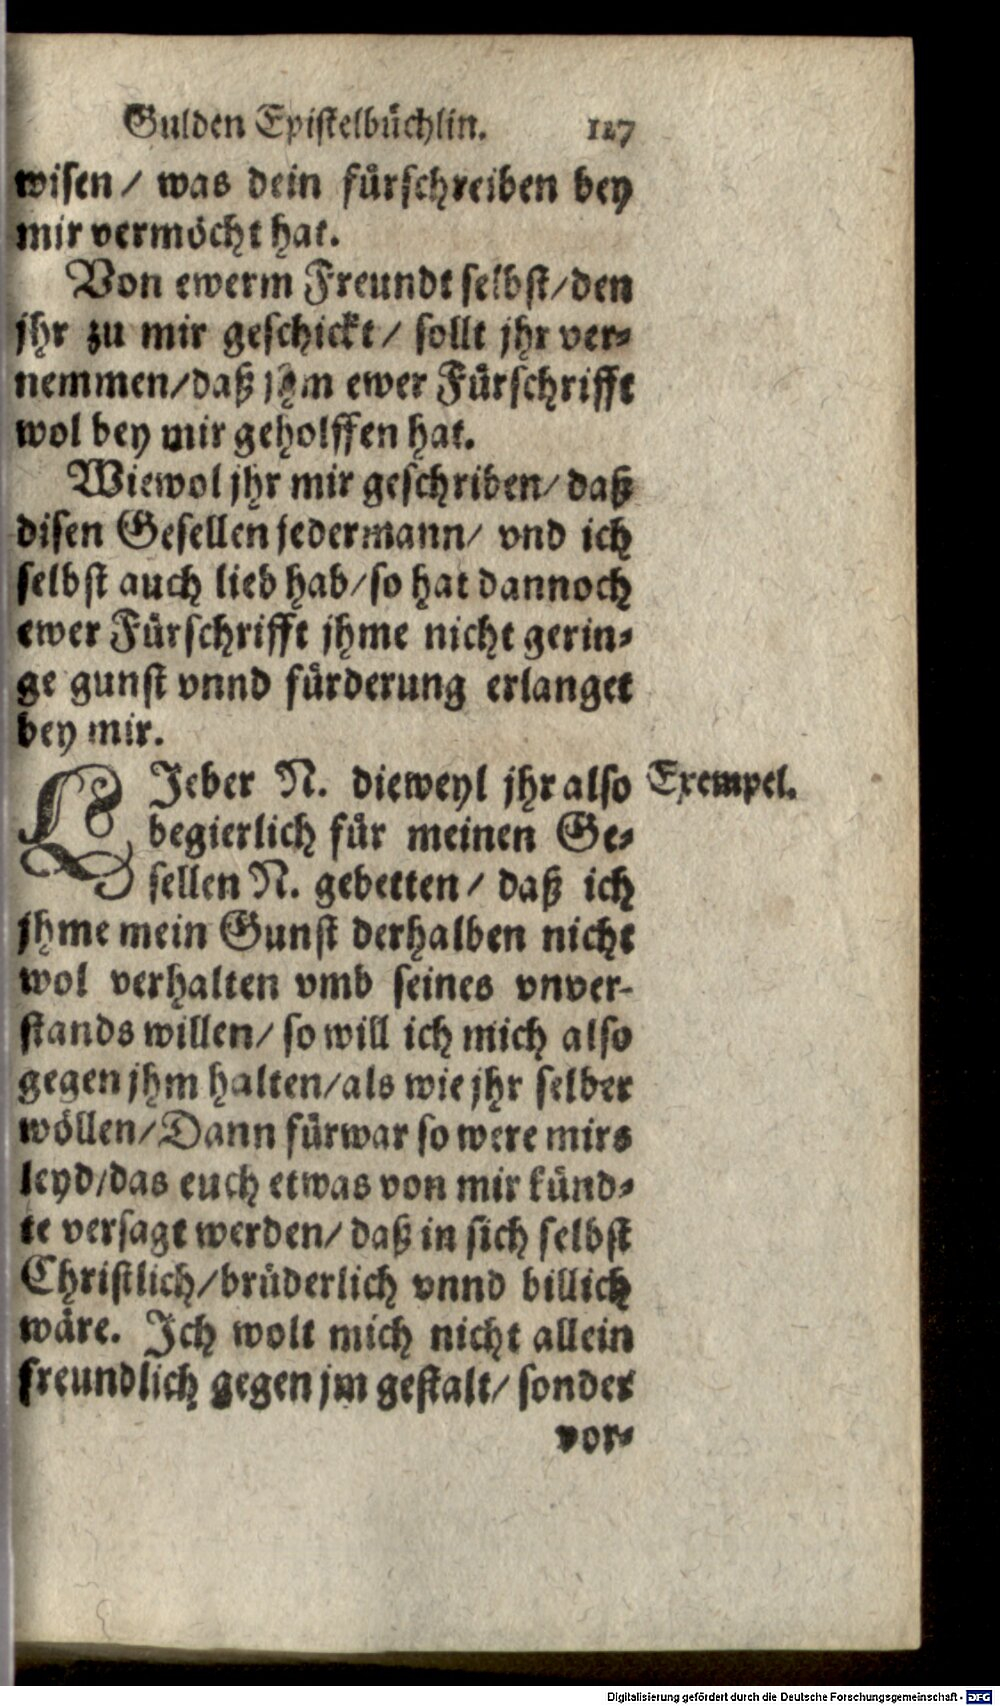 Gulden Epistelbüchlin. 127
wisen/ was dein fürschreiben bey
mir vermöcht hat.
Von ewerm Freundt selbst/den
jhr zu mir geschickt/ sollt jhr ver-
nemmen/daß jhm ewer Fürschrifft
wol bey mir geholffen hat.
Wiewol jhr mir geschriben/ daß
disen Gesellen jedermann/ vnd ich
selbst auch lieb hab/so hat dannoch
ewer Fürschrifft jhme nicht gerin-
ge gunst vnnd fürderung erlanget
bey mir.
LJeber N. dieweyl jhr also
Exempel.
begierlich für meinen Ge-
sellen N. gebetten/ daß ich
jhme mein Gunst derhalben nicht
wol verhalten vmb seines vnver-
stands willen/ so will ich mich also
gegen jhm halten/als wie jhr selber
wöllen/Dann fürwar so were mirs
leyd/das euch etwas von mir künd-
te versagt werden/ daß in sich selbst
Christlich/brüderlich vnnd billich
wäre. Jch wolt mich nicht allein
freundlich gegen jm gestalt/ sonder
vor-
Digitalisierung gefördert durch die Deutsche Forschungsgemeinschaft - DFG